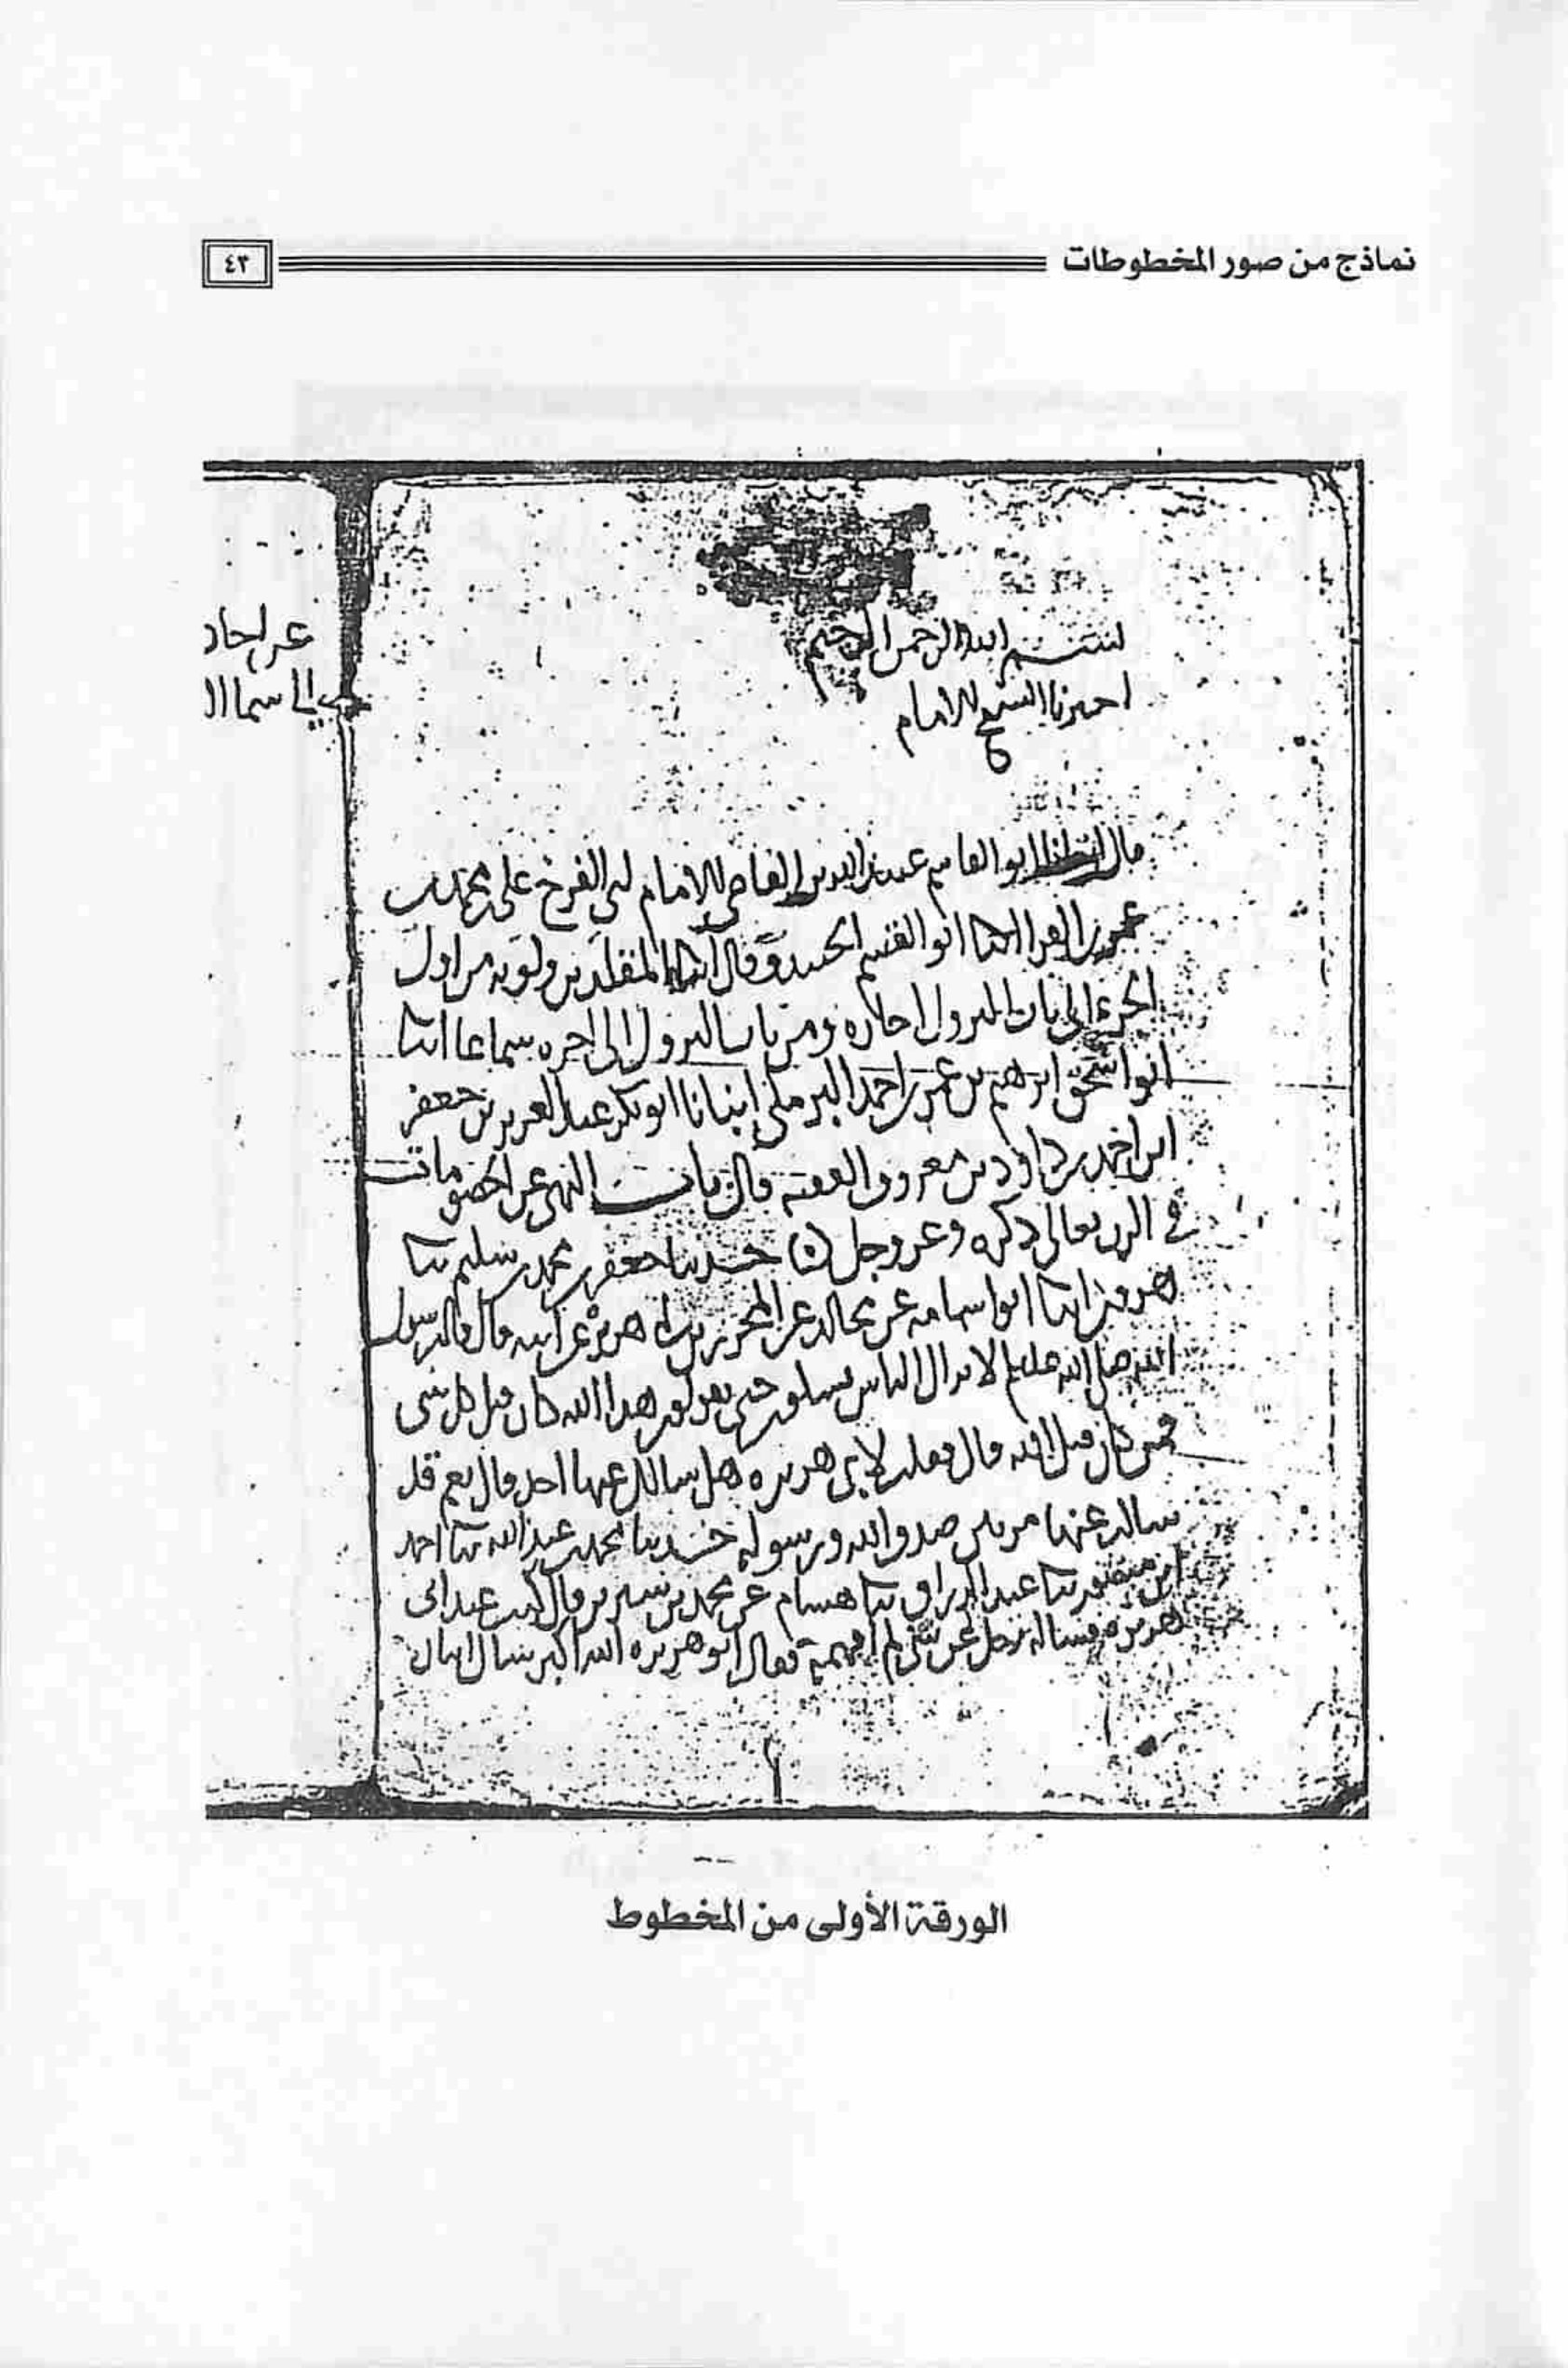 نماذج من صور المخطوطات
٤٣
بسم الله الرحمن الرحيم
اخبرنا الشيخ الامام
قال ابو القاسم عبيد الله بن القاضي الامام ابي الفرج علي بن محمد بن
الفرا انبا ابو القسم قال المقلد بن من اول
الجزء الى باب النزول اجازه ومن باب النزول الى اخره سماعا انبا
ابو اسحق ابرهيم بن عمر بن احمد البرمكي انبانا ابو بكر عبد العزيز بن جعفر
ابن احمد بن داود بن معروف الفقيه قال باب النهي عن الخصومات
في الرب تعالى ذكره وعز وجل حدثنا جعفر بن محمد بن سليم ثنا
هرون انبا ابو اسامه عن مجالد عن المحرر بن ابي هريرة عن ابيه قال قال رسول
الله صلى الله عليه لا يزال الناس يسلون حتى يقولون هذا الله كان قبل كل شي
فمن كان قبل الله قال فقلت لابي هريره هل سالك عنها احد قال نعم قد
سالني عنها مرتين صدق الله ورسوله حدثنا محمد بن عبد الله ثنا احمد
ابن منصور ثنا عبد الرزاق ثنا هشام عن محمد بن سيرين قال كنت عند ابي
هريره فساله رجل عن شي لم افهمه فقال ابو هريره الله اكبر سال اثنان
الى سما ال
الورقة الأولى من المخطوط